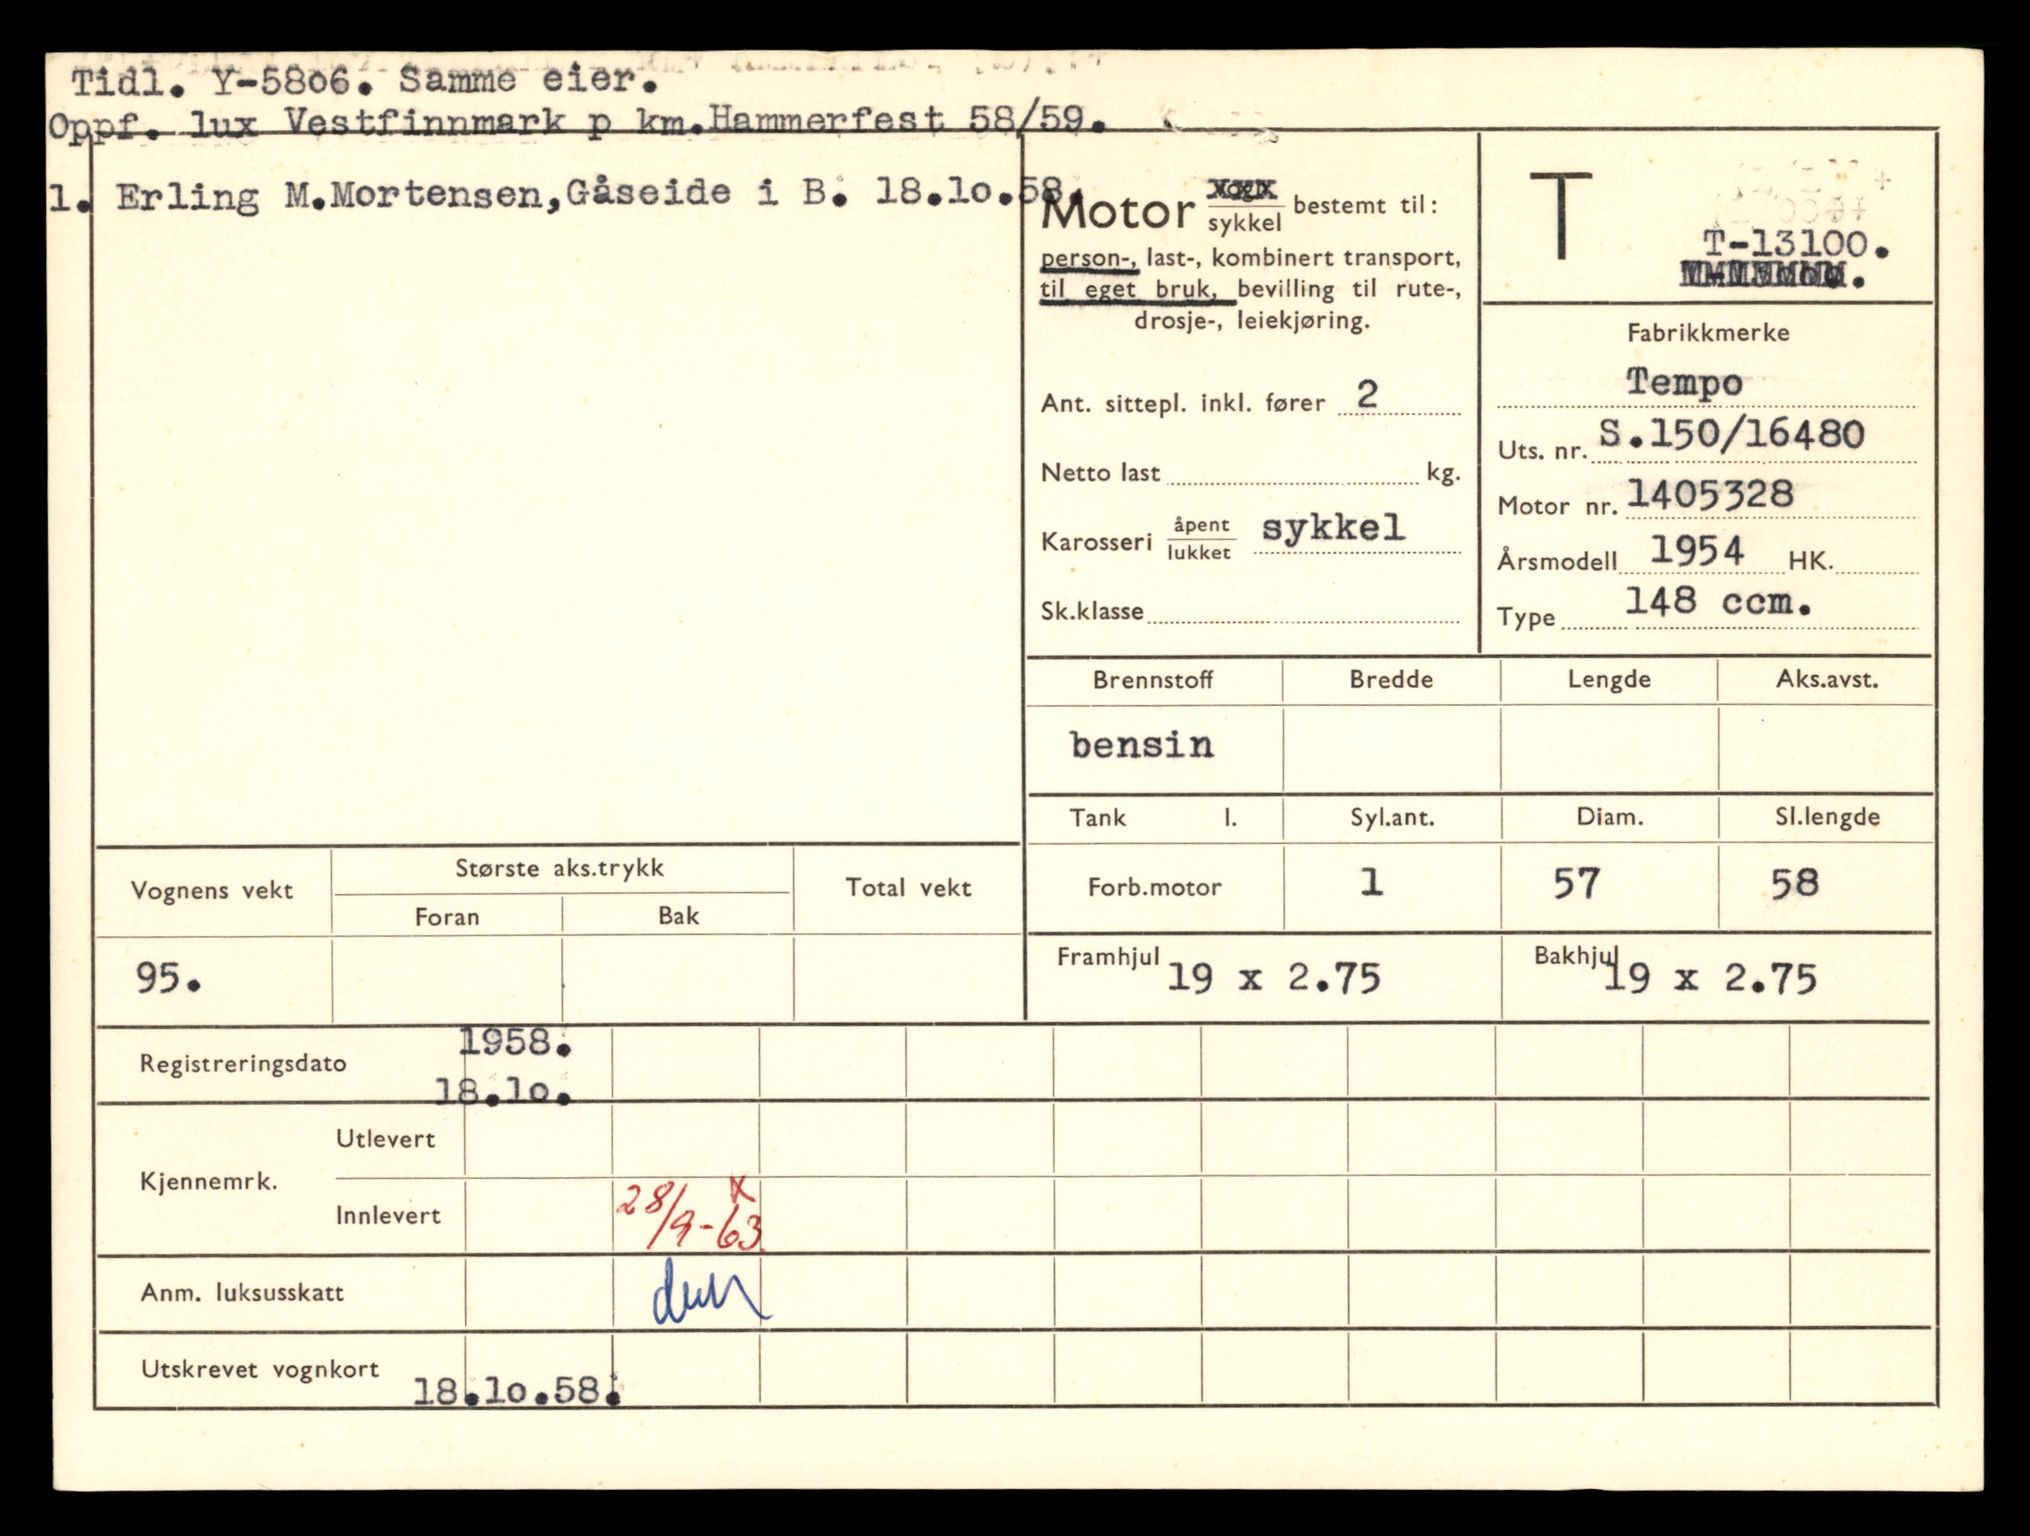 Tidl. Y-58o6. Samme eier.
Oppf. lux Vestfinnmark p km.Hammerfest 58/59.
1. Erling M.Mortensen,Gåseide i B. 18.1o.58.
Motor vogn/sykkel bestemt til:
person-, last-, kombinert transport,
til eget bruk, bevilling til rute-,
drosje-, leiekjøring.
Ant. sittepl. inkl. fører 2
Netto last kg.
Karosseri åpent/lukket sykkel
Sk.klasse
T
T-13100.
Fabrikkmerke
Tempo
Uts. nr. S.150/16480
Motor nr. 1405328
Årsmodell 1954 HK.
Type 148 ccm.
Brennstoff Bredde Lengde Aks.avst.
bensin
Tank l. Syl.ant. Diam. Sl.lengde
Forb.motor 1 57 58
Framhjul 19 x 2.75 Bakhjul 19 x 2.75
Vognens vekt Største aks.trykk Total vekt
Foran Bak
95.
Registreringsdato 1958.
18.1o.
Kjennemrk. Utlevert
Innlevert 28/9-63 x
Anm. luksusskatt
Utskrevet vognkort 18.1o.58.